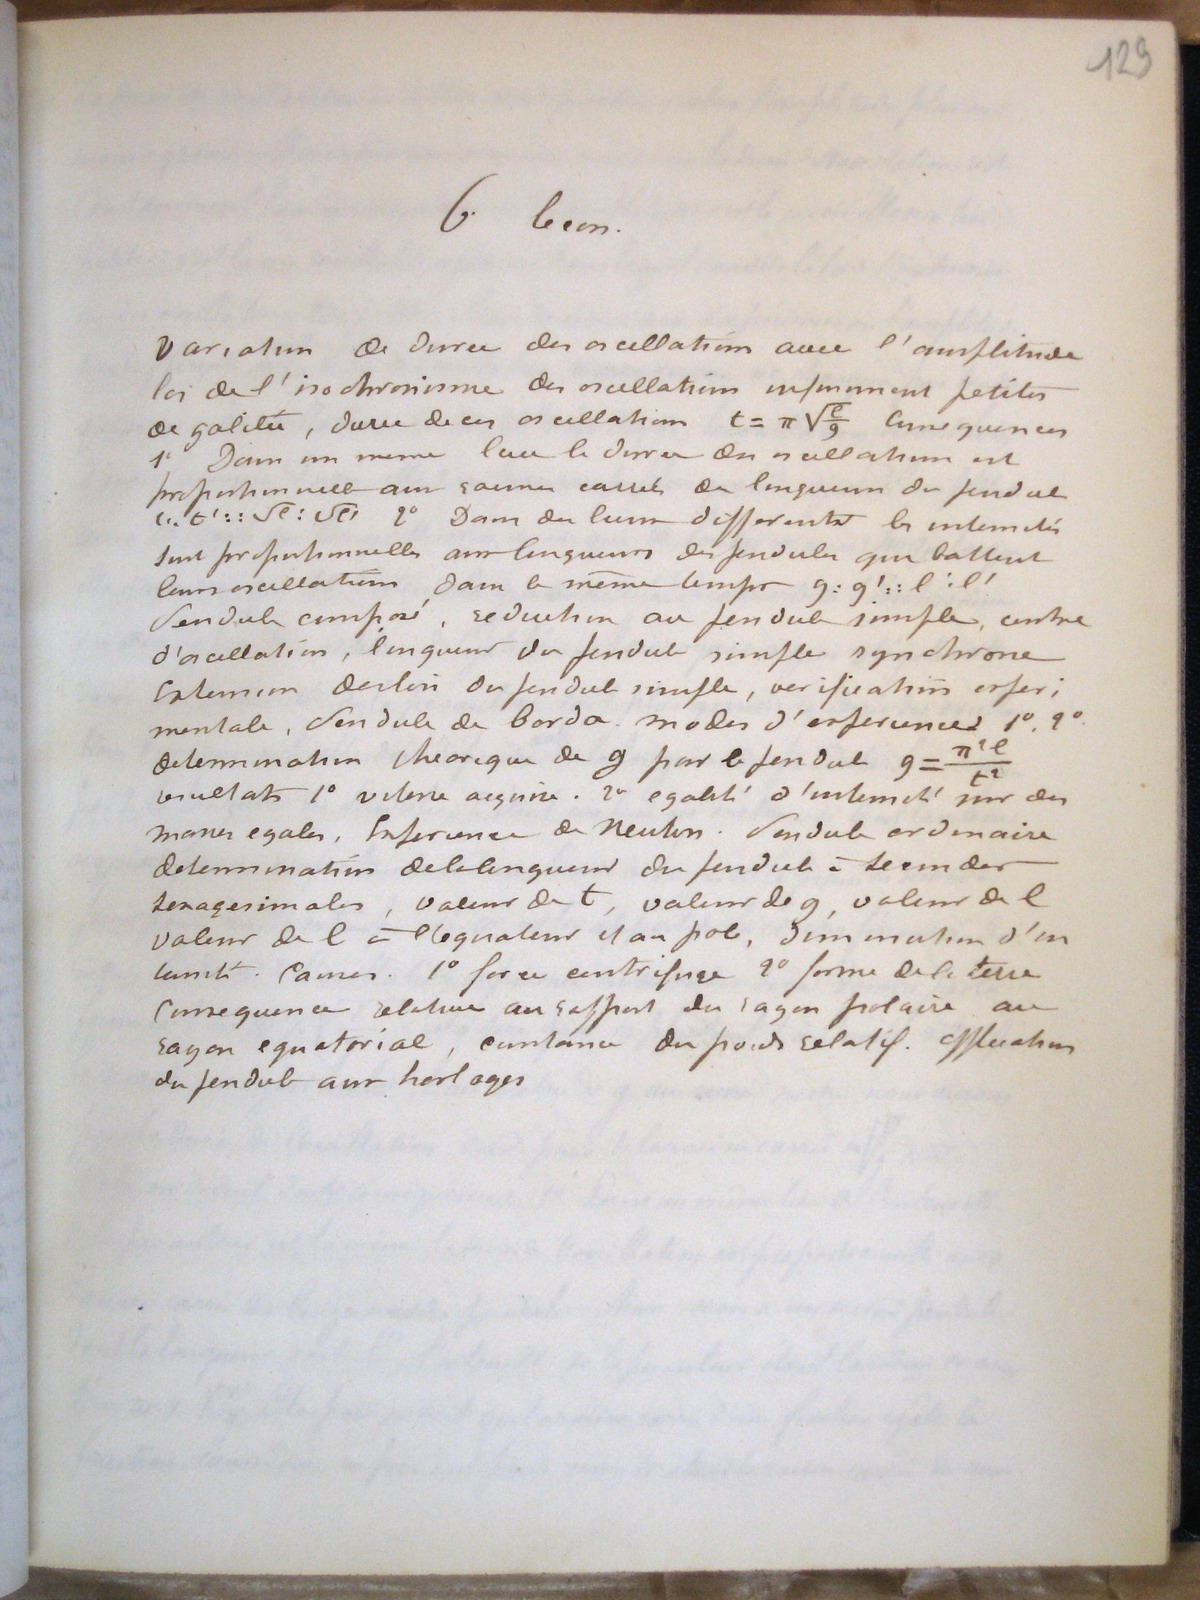 129
6. lecon.
Variation de duree des oscellations avec l'amplitude
loi de l'isochronisme des oscellations infiniment petites
de galilée, duree de ces oscellations t = π √l/g Consequences
1° Dans un meme lieu la duree des oscellations est
proportionnelle aux racines carrés des longueurs du pendule
t : t' :: √l : √l' 2° Dans des lieux differents les intensités
sont proportionnelles aux longueurs des pendules qui battent
leurs oscellations dans le même temps g : g' :: l : l'
Pendule composé, reduction au pendule simple, centre
d'oscellation, longueur du pendule simple synchrone
Extension des lois du pendule simple, verification experi
mentale, Pendule de Borda. modes d'experiences 1°. 2°.
determination theorique de g par le pendule g = π² l / t²
resultats 1° vitesse acquise. 2° egalité d'intensité sur des
masses egales, Experience de Neuton. Pendule ordinaire
determination de la longueur du pendule à secondes
sexagesimales, valeur de t, valeur de g, valeur de l
valeur de l à l'equateur et au pole, diminution d'in
tensité. Causes. 1° force centrifuge 2° forme de la terre
Consequence relative au rapport du rayon polaire au
rayon equatorial, constance du poids relatif. Application
du pendule aux horloges